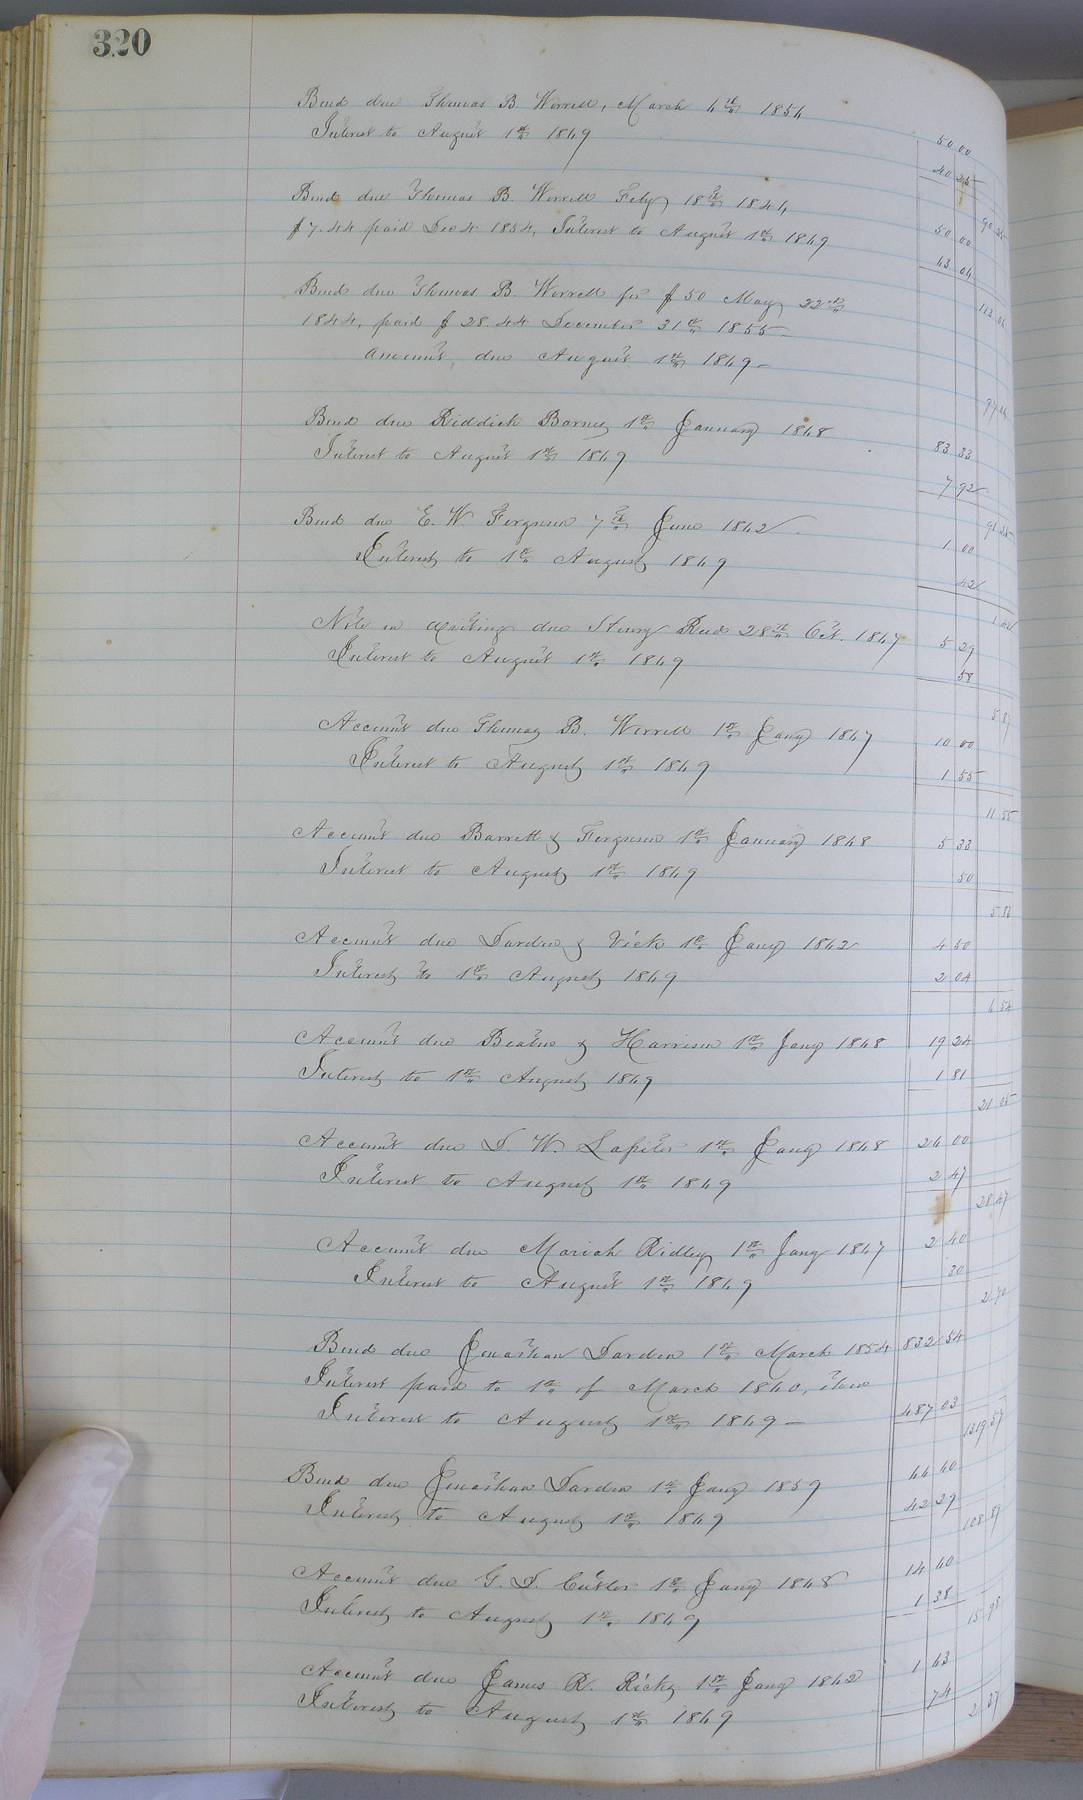 320
Bond due Thomas B. Worrell, March 4th 1854
Interest to August 1st 1869
50 00
40 25
90 25
Bond due Thomas B. Worrell Feby 18th 1844
$7.44 paid Dec 4 1854, Interest to August 1st 1869
50 00
63 04
113 04
Bond due Thomas B. Worrell for $50 May 22nd
1844, paid $28.44 December 31st 1855
amount due August 1st 1869
Bond due Riddick Barnes 1st January 1868
Interest to August 1st 1869
83 33
7 92
91 25
Bond due E. W Ferguson 7th June 1862
Interest to 1st August 1869
1 00
42
1 42
Note in writing due Henry Reid 28th Oct. 1867
Interest to August 1st 1869
5 29
58
5 87
Account due Thomas B. Worrell 1st Jany 1867
Interest to August 1st 1869
10 00
1 55
11 55
Account due Barrett & Ferguson 1st January 1868
Interest to August 1st 1869
5 33
50
5 83
Account due Darden & Vick 1st Jany 1862
Interest to 1st August 1869
4 50
2 04
6 54
Account due Beaton & Harrison 1st Jany 1868
Interest to 1st August 1869
19 24
1 81
21 05
Account due D. W. 1st Jany 1868
Interest to August 1st 1869
26 00
2 47
28 47
Account due Mariah Ridley 1st Jany 1867
Interest to August 1st 1869
2 40
30
2 70
Bond due Jonathan Darden 1st March 1854
832 54
Interest paid to 1st of March 1860, then
Interest to August 1st 1869
487 03
1319 57
Bond due Jonathan Darden 1st Jany 1859
Interest to August 1st 1869
66 60
42 29
108 89
Account due G. D. Cutler 1st Jany 1868
Interest to August 1st 1869
14 60
1 38
15 98
Account due James R. Ricks 1st Jany 1862
Interest to August 1st 1869
1 63
74
2 37